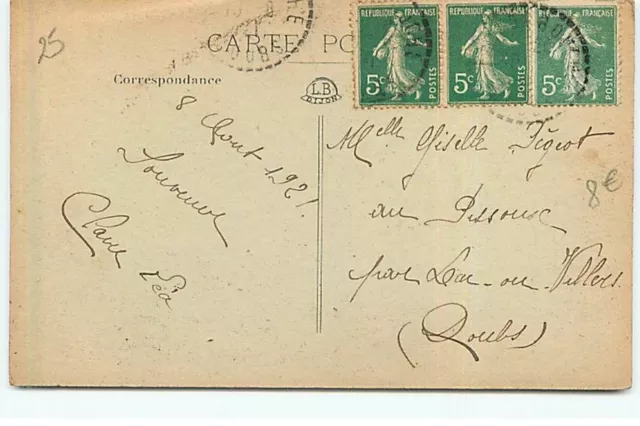 25
CARTE PO
Correspondance
L B
DIJON
REPUBLIQUE FRANÇAISE
5c POSTES
REPUBLIQUE FRANÇAISE
5c POSTES
REPUBLIQUE FRANÇAISE
5c POSTES
8 Aout 1921
Souvenir
Claire Léa
Melle Giselle Pigeot
au Pissoux
par Lac-ou-Villers
(Doubs)
8€